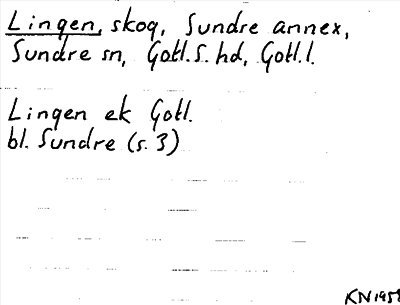 Lingen, skog, Sundre annex,
Sundre sn, Gotl. S. hd, Gotl. l.
Lingen ek Gotl.
bl. Sundre (s. 3)